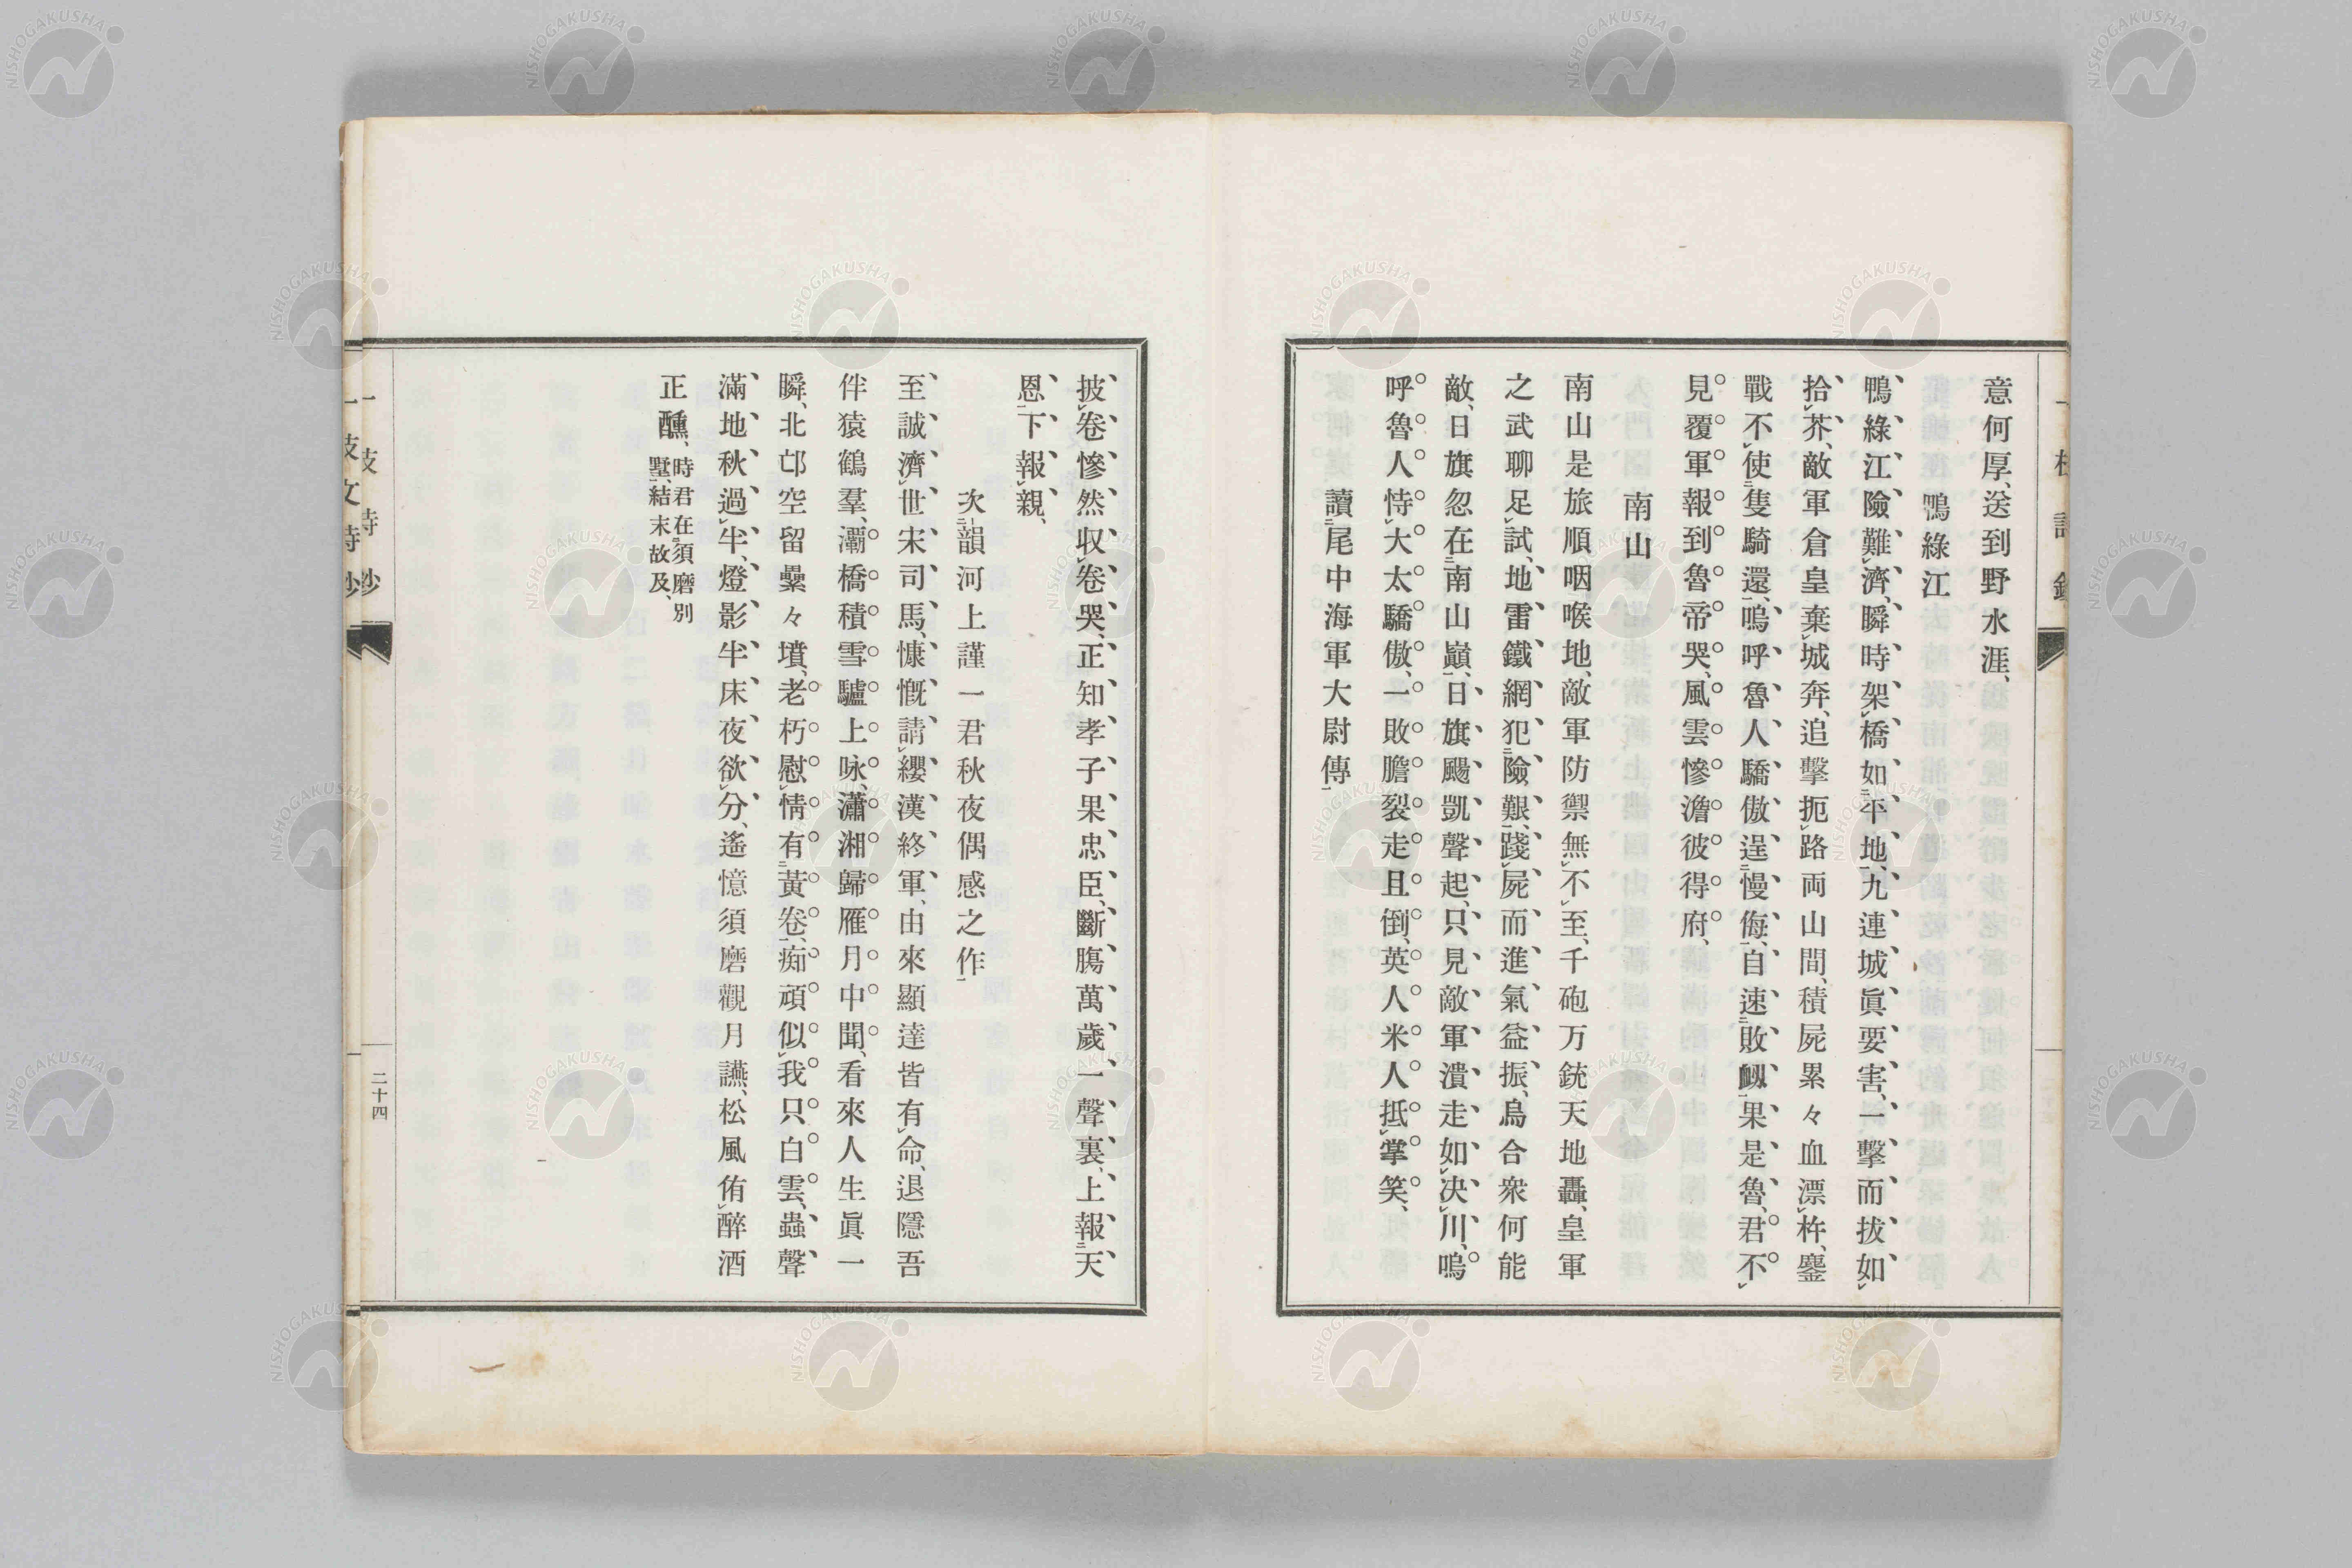 意何厚、送到野水涯、
鴨綠江
鴨綠江險難濟、瞬時架橋如平地、九連城眞要害、一擊而拔如
拾芥、敵軍倉皇棄城奔、追擊扼路両山間、積屍累々血漂杵、鏖
戰不使隻騎還、嗚呼魯人驕傲逞慢侮、自速敗衂果是魯、君不
見覆軍報到魯帝哭、風雲慘澹彼得府、
南山
南山是旅順咽喉地、敵軍防禦無不至、千砲万銃天地轟、皇軍
之武聊足試、地雷鐵網犯險艱、踐屍而進氣益振、烏合衆何能
敵、日旗忽在南山巓、日旗颺凱聲起、只見敵軍潰走如决川、嗚
呼魯人恃大太驕傲、一敗膽裂走且倒、英人米人抵掌笑、
讀尾中海軍大尉傳
披卷慘然収卷哭、正知孝子果忠臣、斷膓萬歲一聲裏、上報天
恩下報親、
次韻河上謹一君秋夜偶感之作
至誠濟世宋司馬、慷慨請纓漢終軍、由來顯達皆有命、退隱吾
伴猿鶴羣、灞橋積雪驢上咏、瀟湘歸雁月中聞、看來人生眞一
瞬、北邙空留纍々墳、老朽慰情有黃卷、痴頑似我只白雲、蟲聲
滿地秋過半、燈影半床夜欲分、遙憶須磨觀月讌、松風侑醉酒
正醺、時君在須磨別
墅、結末故及、
一枝詩鈔
二十四
一枝文詩鈔